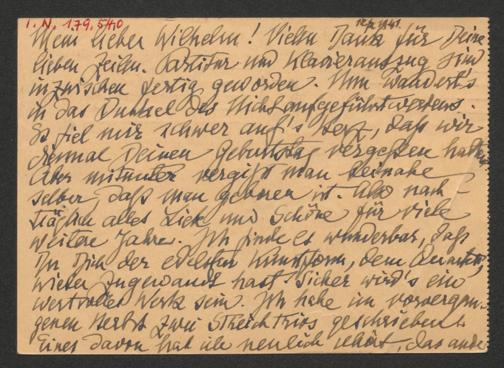 I. N. 179.540
Mein lieber Wilhelm! Vielen Dank für Deine
lieben Zeilen. Partitur und Klavierauszug sind
inzwischen fertig geworden. Nun wandert's
in das Dunkel des Nichtaufgeführtwerdens.
Es fiel mir schwer auf's Herz, daß wir
diesmal Deinen Geburtstag vergessen hatten.
Aber mitunter vergißt man beinahe
selber, daß man geboren ist. Also nach-
träglich alles Liebe und Schöne für viele
weitere Jahre. Ich finde es wunderbar, daß
Du Dich der edelsten Kunstform, dem Quartett,
wieder zugewandt hast. Sicher wird's ein
wertvolles Werk sein. Ich habe im vorvergan-
genen Herbst zwei Streichtrios geschrieben.
Eines davon hab ich neulich gehört, das andere